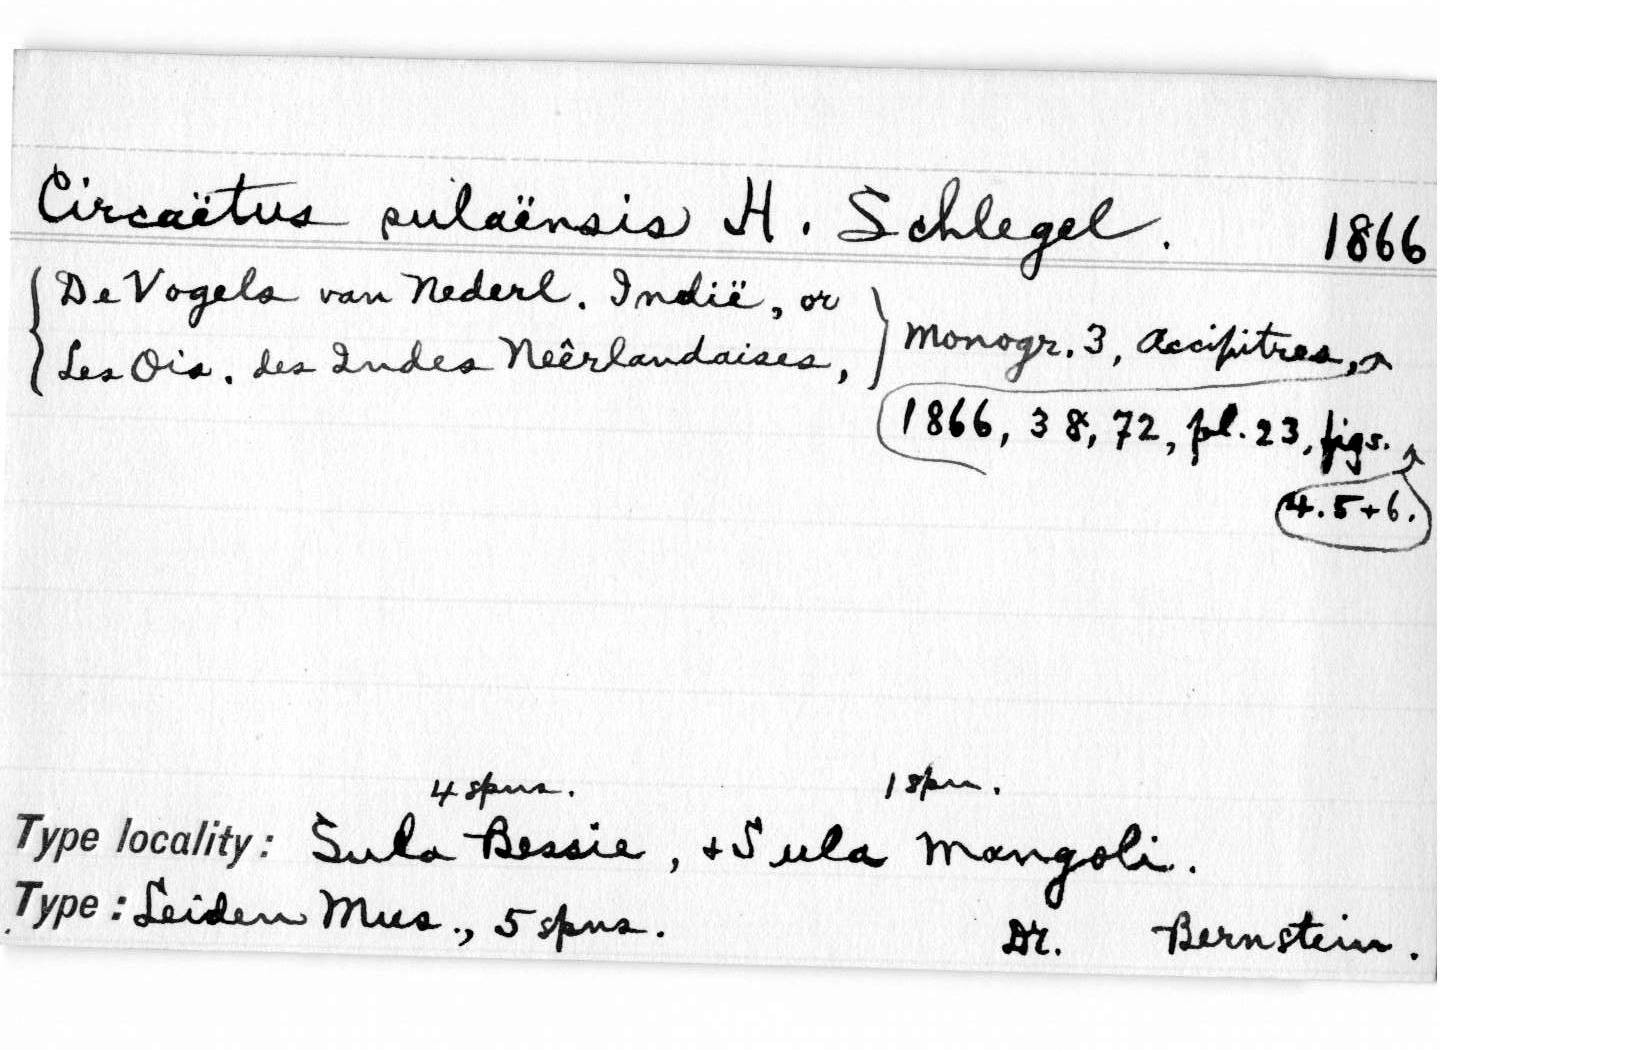 Circaëtus sulaënsis H. Schlegel. 1866
De Vogels van Nederl. Indië, or
Les Ois. des Indes Neêrlandaises, Monogr. 3, Accipitres,
1866, 38, 72, pl. 23, figs.
4. 5 + 6.
4 spns. 1 spn.
Type locality: Sula Bessie, + Sula Mangoli.
Type: Leiden Mus., 5 spns. Dr. Bernstein.